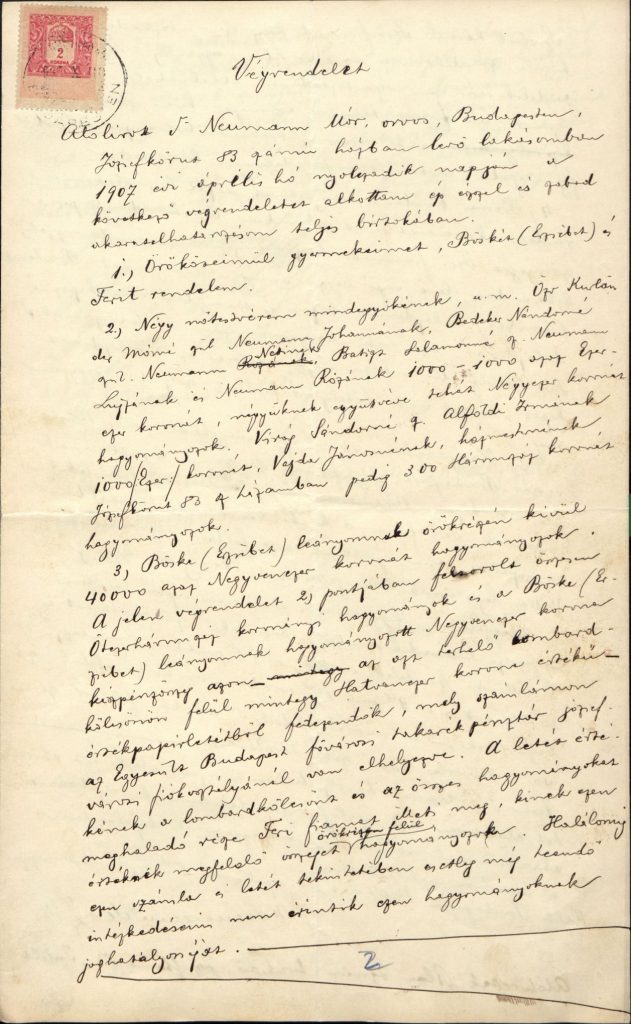 2
KORONA
Végrendelet
Alólirot Dr Neumann Mór, orvos, Budapesten,
Józsefkörut 83 számú házban levő lakásomban
1907 évi április hó nyolczadik napján a
következő végrendeletet alkottam ép észszel és szabad
akaratelhatározásom teljes birtokában.
1., Örököseimül gyermekeimet, Böskét (Erzsébet) és
Ferit rendelem.
2.) Négy nőtestvérem mindegyikének, u. m. Özv Kurlän
der Mórné szül Neumann Johannának, Bedeker Nándorné
szül. Neumann Netinek, Salamonné sz. Neumann
Lujzának és Neumann Rózának 1000 – 1000 azaz Ezer
ezer koronát, négyüknek együtvéve tehát Négyezer koronát
hagyományozok. Virág Sándorné sz. Alföldi Irmának
1000 /Ezer/ koronát, Vajda Jánosnénak, házmesternének
Józsefkörut 83 sz házamban pedig 300 Háromszáz koronát
hagyományozok.
3., Böske (Erzsébet) leányomnak örökrészén kivül
40000 azaz Negyvenezer koronát hagyományozok.
A jelen végrendelet 2, pontjában felsorolt összesen
Ötezerháromszáz koronányi hagyományok és a Böske (Er-
zsébet) leányomnak hagyományozott Negyvenezer korona
készpénzösszeg azon mintegy az azt terhelő lombard-
kölcsönön felül mintegy Hatvanezer korona értékü
értékpapirletétből fedezendők, mely számlámon
az Egyesült Budapest fővárosi takarékpénztár József-
városi fiókosztályánál van elhelyezve. A letét érté-
kének a lombardkölcsönt és az összes hagyományokat
meghaladó része Feri fiamat illeti meg, kinek ezen
értéknek megfelelő összeget örökrészén felül hagyományozok. Halálomig
ezen számla és letét tekintetében esetleg még teendő
intézkedéseim nem érintik ezen hagyományoknak
joghatályosságát.
2